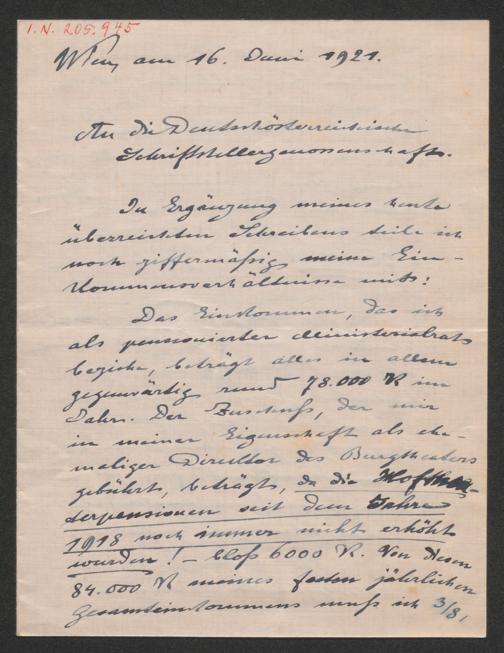 I.N. 205.945
Wien, am 16. Juni 1921.
An die Deutschösterreichische
Schriftstellergenossenschaft.
In Ergänzung meines heute
überreichten Schreibens teile ich
noch ziffermäßig meine Ein-
kommensverhältnisse mit:
Das Einkommen, das ich
als pensionierter Ministerialrat
beziehe, beträgt alles in allem
gegenwärtig rund 78.000 K im
Jahr. Der Zuschuß, der mir
in meiner Eigenschaft als ehe-
maliger Direktor des Burgtheaters
gebührt, beträgt, da die Hofthea-
terpensionen seit dem Jahre
1918 noch immer nicht erhöht
wurden! – bloß 6000 K. Von diesen
84.000 K meines festen jährlichen
Gesamteinkommens muß ich